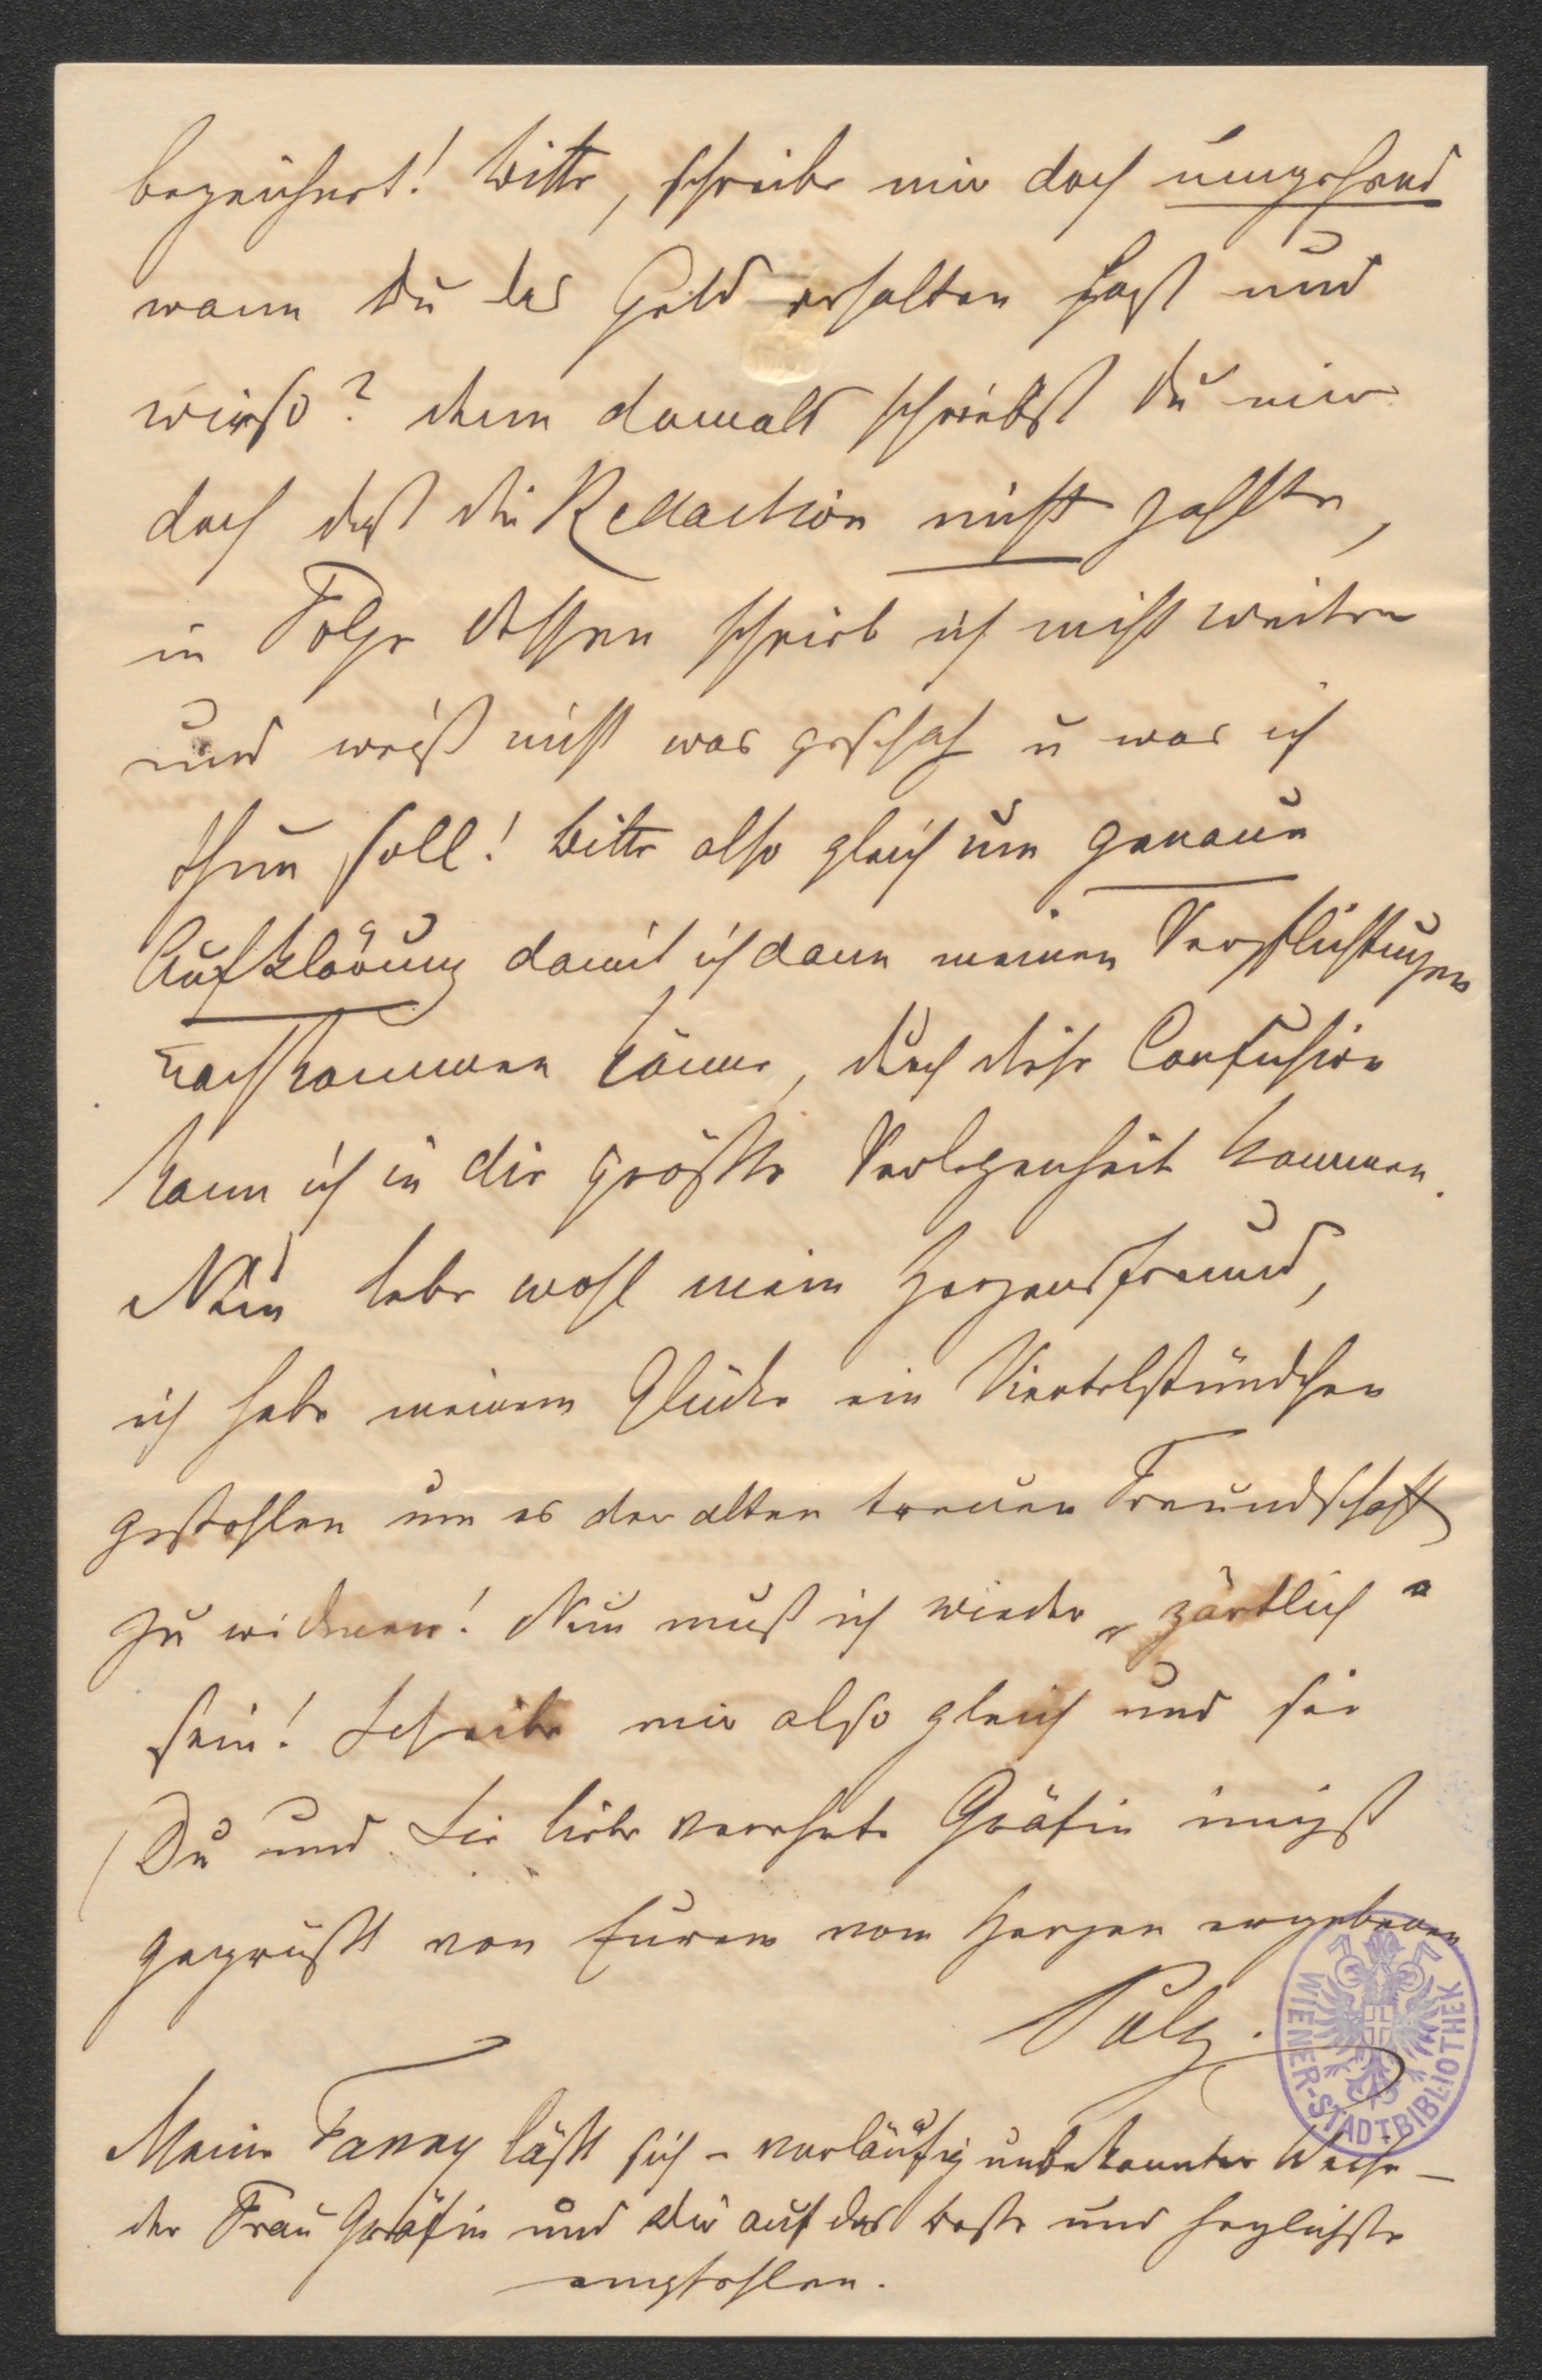 bezeichnet! Bitte, schreibe mir doch umgehend
wann Du das Geld erhalten hast und
wieso? denn damals schriebst Du mir
doch daß die Redaction nicht zahlte,
in Folge dessen schrieb ich nicht weiter
und weiß nicht was geschah u was ich
thun soll! Bitte also gleich um genaue
Aufklärung damit ich dann meinen Verpflichtungen
nachkommen könne, durch diese Confusion
kann ich in die größte Verlegenheit kommen.
Nun lebe wohl mein Herzensfreund,
ich habe meinem Glücke ein Viertelstündchen
gestohlen um es der alten treuen Freundschaft
zu widmen! Nun muß ich wieder „zärtlich“
sein! Schreibe mir also gleich und sei
Du und Sie liebe verehrte Gräfin innigst
gegrüßt von Eurem vom Herzen ergebenen
WIENER-STADTBIBLIOTHEK
Meine Fanny läßt sich – vorläufig unbekannter Weise –
der Frau Gräfin und Dir auf das beste und herzlichste
empfohlen.